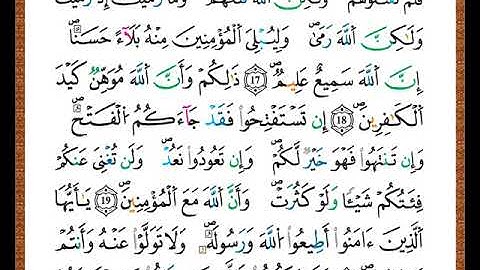 فَلَمْ تَقْتُلُوهُمْ وَلَٰكِنَّ ٱللَّهَ قَتَلَهُمْ وَمَا رَمَيْتَ إِذْ رَمَيْتَ
وَلَٰكِنَّ ٱللَّهَ رَمَىٰ وَلِيُبْلِىَ ٱلْمُؤْمِنِينَ مِنْهُ بَلَآءً حَسَنًا
إِنَّ ٱللَّهَ سَمِيعٌ عَلِيمٌ 17 ذَٰلِكُمْ وَأَنَّ ٱللَّهَ مُوهِنُ كَيْدِ
ٱلْكَٰفِرِينَ 18 إِن تَسْتَفْتِحُوا۟ فَقَدْ جَآءَكُمُ ٱلْفَتْحُ
وَإِن تَنتَهُوا۟ فَهُوَ خَيْرٌ لَّكُمْ وَإِن تَعُودُوا۟ نَعُدْ وَلَن تُغْنِىَ عَنكُمْ
فِئَتُكُمْ شَيْـًٔا وَلَوْ كَثُرَتْ وَأَنَّ ٱللَّهَ مَعَ ٱلْمُؤْمِنِينَ 19 يَٰٓأَيُّهَا
ٱلَّذِينَ ءَامَنُوٓا۟ أَطِيعُوا۟ ٱللَّهَ وَرَسُولَهُۥ وَلَا تَوَلَّوْا۟ عَنْهُ وَأَنتُمْ